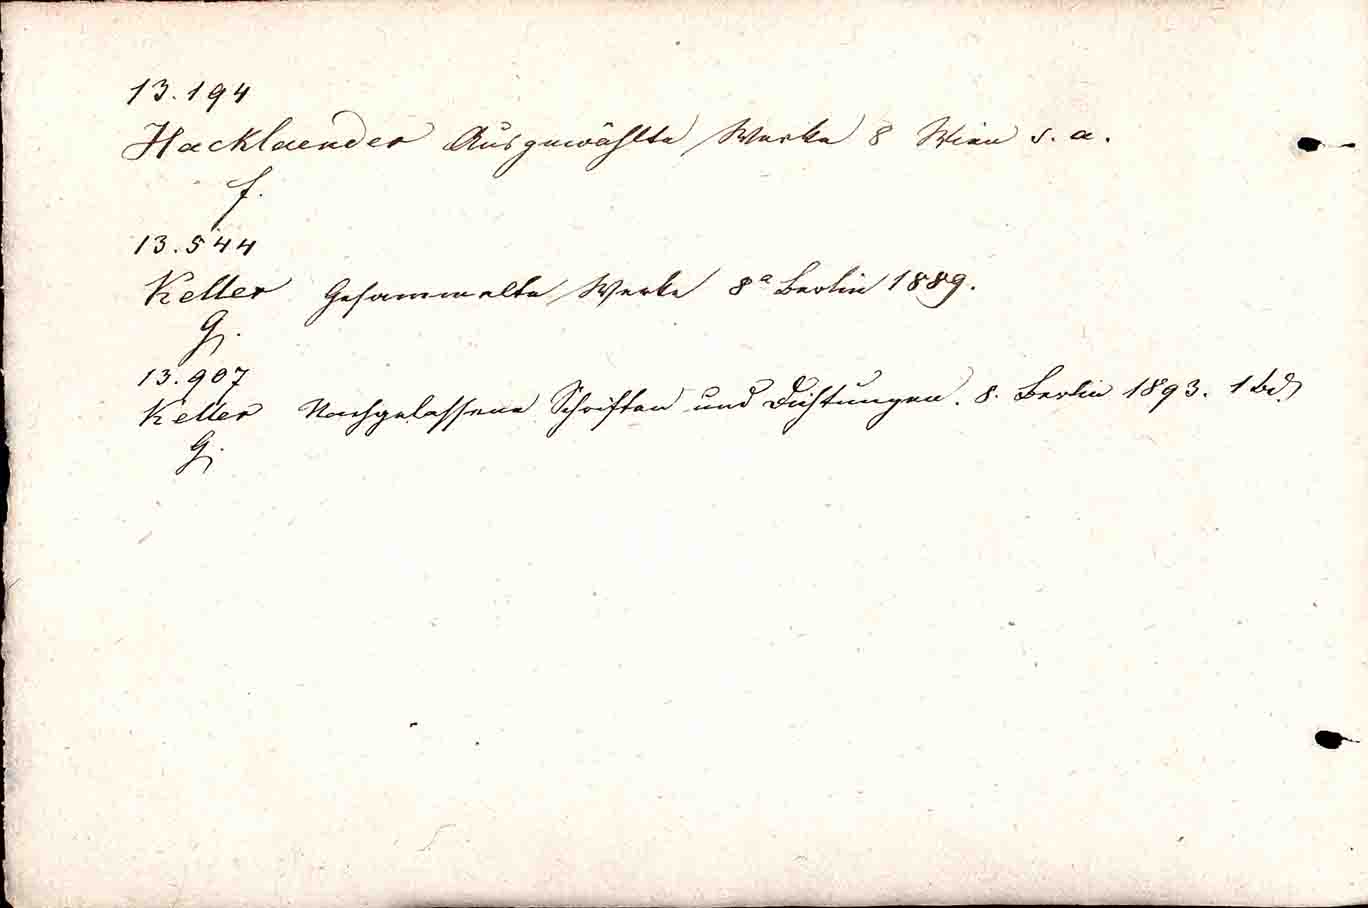 13.194
Hacklaender Ausgewählte Werke 8 Wien s. a.
f.
13.544
Keller Gesammelte Werke 8° Berlin 1889.
G.
13.907
Keller Nachgelassene Schriften und Dichtungen. 8. Berlin 1893. 1 Bd.
G.